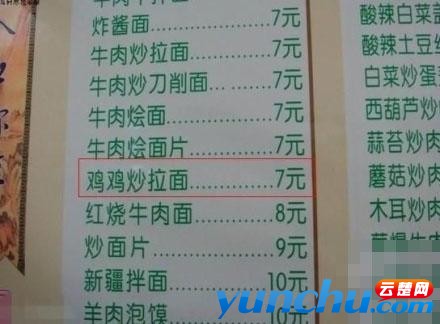 炸酱面............7元
牛肉炒拉面.......7元
牛肉炒刀削面....7元
牛肉烩面..........7元
牛肉烩面片.......7元
鸡鸡炒拉面.......7元
红烧牛肉面.......8元
炒面片.............9元
新疆拌面..........10元
羊肉泡馍..........10元
酸辣白菜
酸辣土豆丝
白菜炒蛋
西葫芦炒
蒜苔炒肉
蘑菇炒肉
木耳炒肉
云楚网
yunchu.com